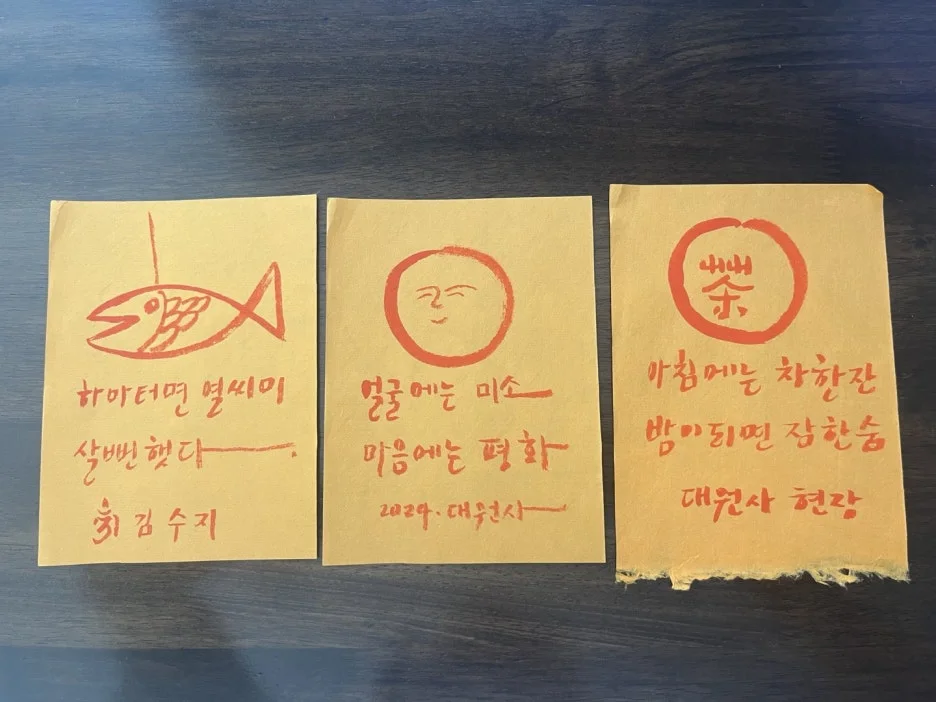 하마터면 열씨미
살뻔햇다
김수지
얼굴에는 미소
마음에는 평화
2024. 대원사
茶
아침에는 차한잔
밤이되면 잠한숨
대원사 현장